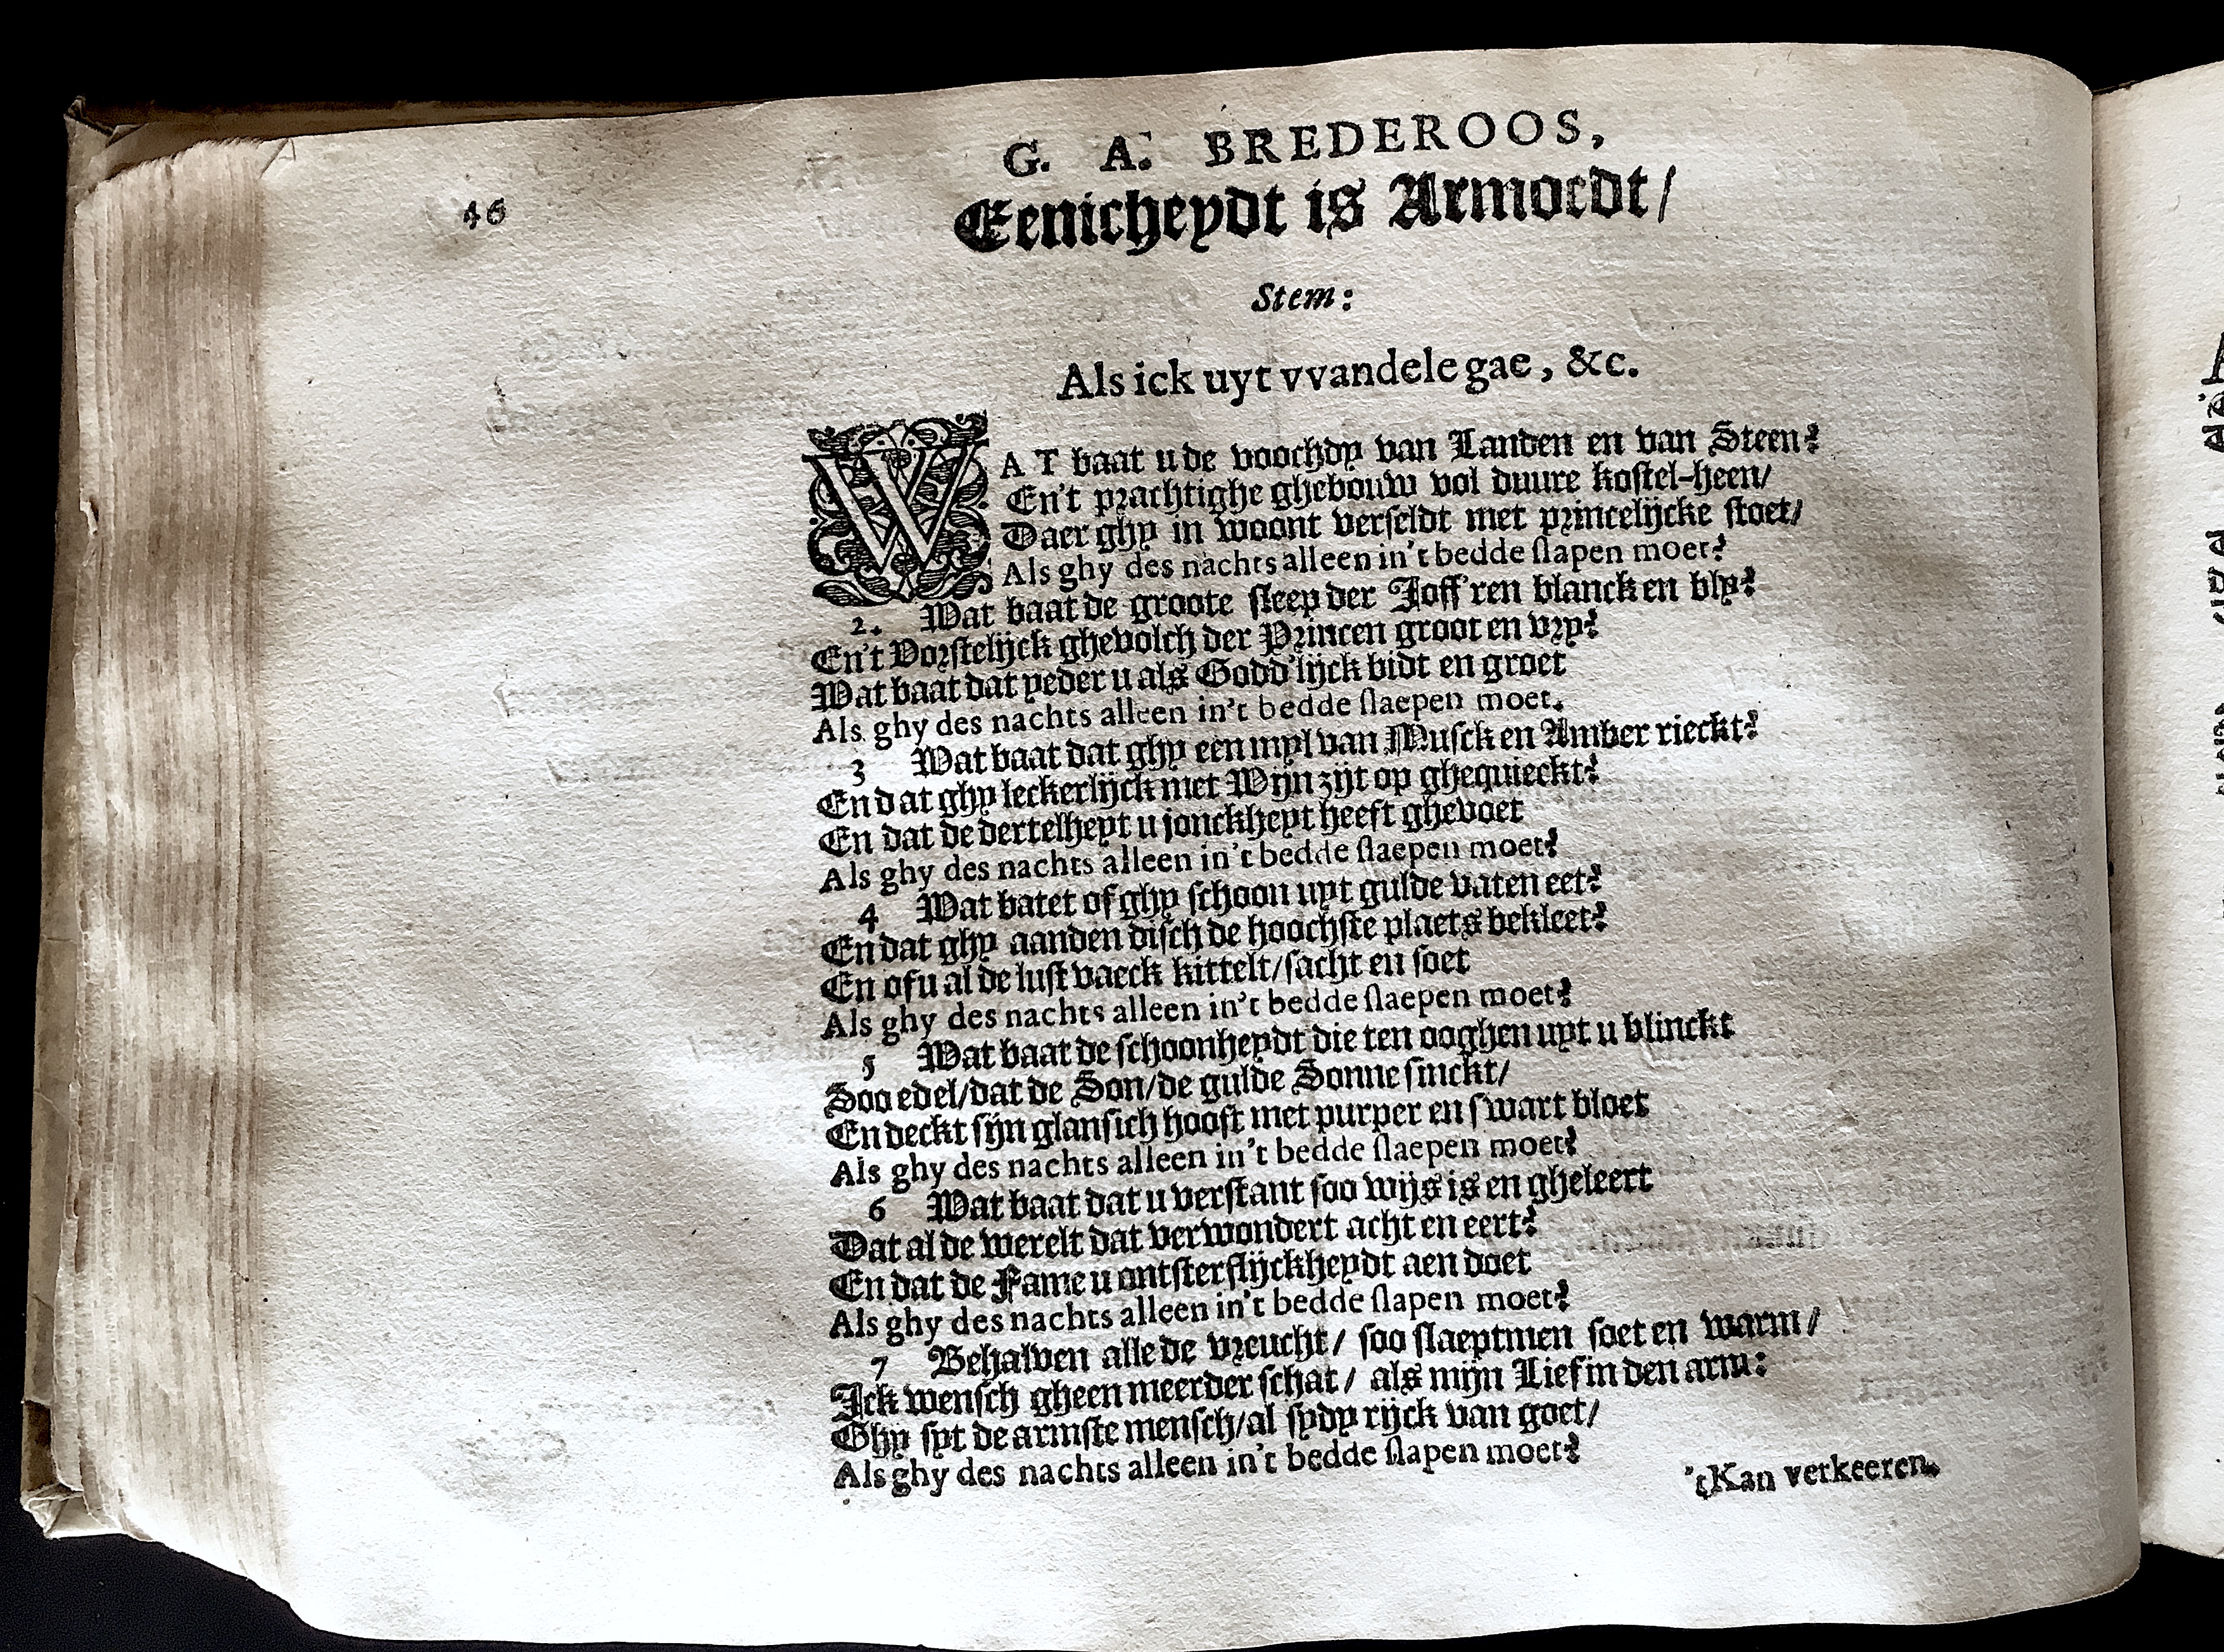 46
G. A. BREDEROOS,
Eenicheydt is Armoedt/
Stem:
Als ick uyt vvandele gae, &c.
WAT baat u de voochdy van Landen en van Steen?
En't prachtighe ghebouw vol duure kostel-heen/
Daer ghy in woont verseldt met princelijcke stoet/
Als ghy des nachts alleen in't bedde slapen moet?
2. Wat baat de groote sleep der Joff'ren blanck en bly?
En't Vorstelijck ghevolch der Princen groot en vry?
Wat baat dat yeder u als Godd'lijck bidt en groet
Als ghy des nachts alleen in't bedde slaepen moet.
3 Wat baat dat ghy een myl van Musck en Amber rieckt?
En dat ghy leckerlijck met Wijn zijt op ghequieckt?
En dat de dertelheyt u jonckheyt heeft ghevoet
Als ghy des nachts alleen in't bedde slaepen moet?
4 Wat batet of ghy schoon uyt gulde vaten eet?
En dat ghy aanden disch de hoochste plaets bekleet?
En of u al de lust vaeck kittelt/sacht en soet
Als ghy des nachts alleen in't bedde slaepen moet?
5 Wat baat de schoonheydt die ten ooghen uyt u blinckt
Soo edel/dat de Son/de gulde Sonne sinckt/
En deckt sijn glansich hooft met purper en swart bloet
Als ghy des nachts alleen in't bedde slaepen moet?
6 Wat baat dat u verstant soo wijs is en gheleert
Dat al de werelt dat verwondert acht en eert?
En dat de Fame u ontsterflijckheydt aen doet
Als ghy des nachts alleen in't bedde slapen moet?
7 Behalven alle de vreucht/ soo slaeptmen soet en warm/
Ick wensch gheen meerder schat/ als mijn Lief in den arm:
Ghy syt de armste mensch/al sydy rijck van goet/
Als ghy des nachts alleen in't bedde slapen moet?
'tKan verkeeren.